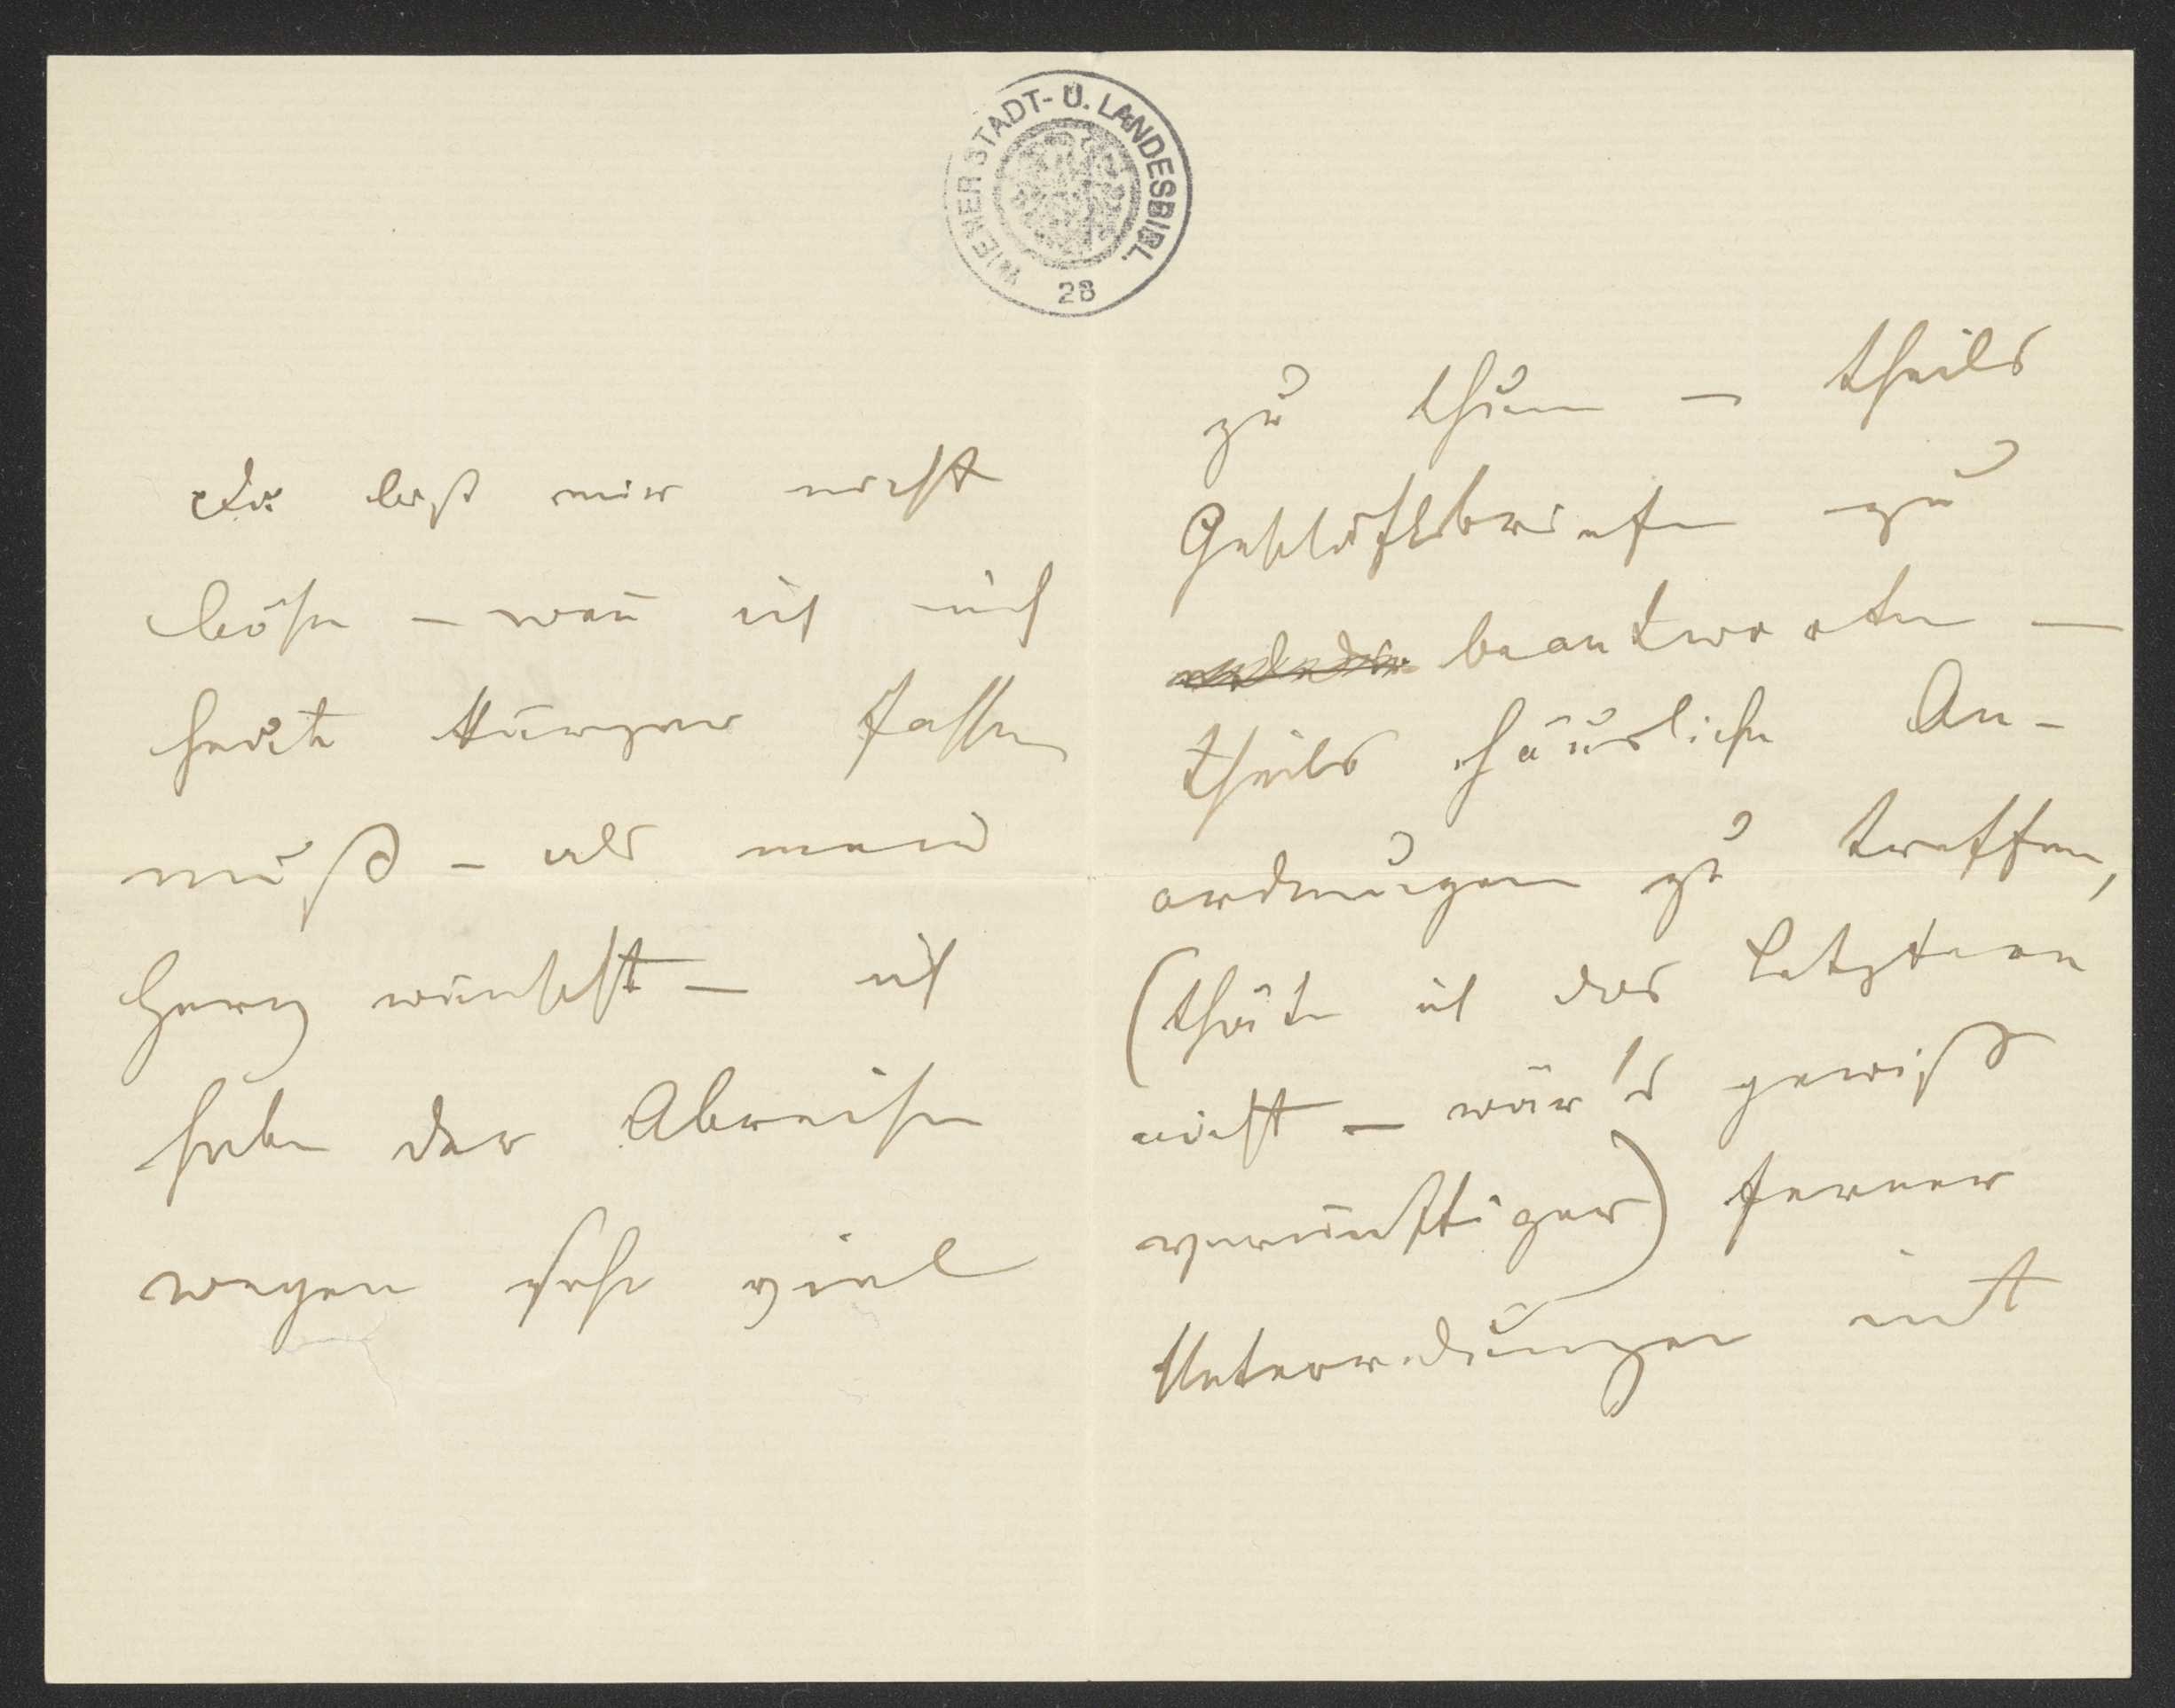 WIENER STADT- U. LANDESBIBL.
28
Du bist mir nicht
böse – wen̄ ich mich
heute kürzer fassen
muß – als mein
Herz wünscht – ich
habe der Abreise
wegen sehr viel
zu thun – theils
Geschäftsbriefe zu
beantworten –
theils häusliche An-
ordnungen zu treffen,
(thäte ich das letztere
nicht – wär's gewiß
vernünftiger) ferner
Unterredungen mit